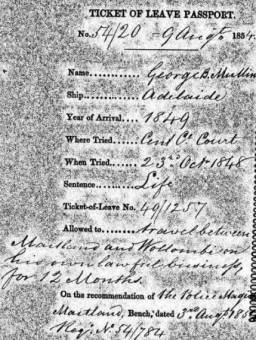 TICKET OF LEAVE PASSPORT.
No. 54/20 - 9 Augt. 1854.
Name............ George B. Mullin
Ship............ Adelaide
Year of Arrival.... 1849
Where Tried...... Cent. Cl. Court
When Tried...... 23rd Octr 1848
Sentence......... Life
Ticket-of-Leave No. 49/1257
Allowed to........ travel between
Maitland and Wollombi on
his own lawful business,
for 12 Months
On the recommendation of the Police Magis
Maitland, Bench, dated 3rd Augt 185
Regr. No. 54/784